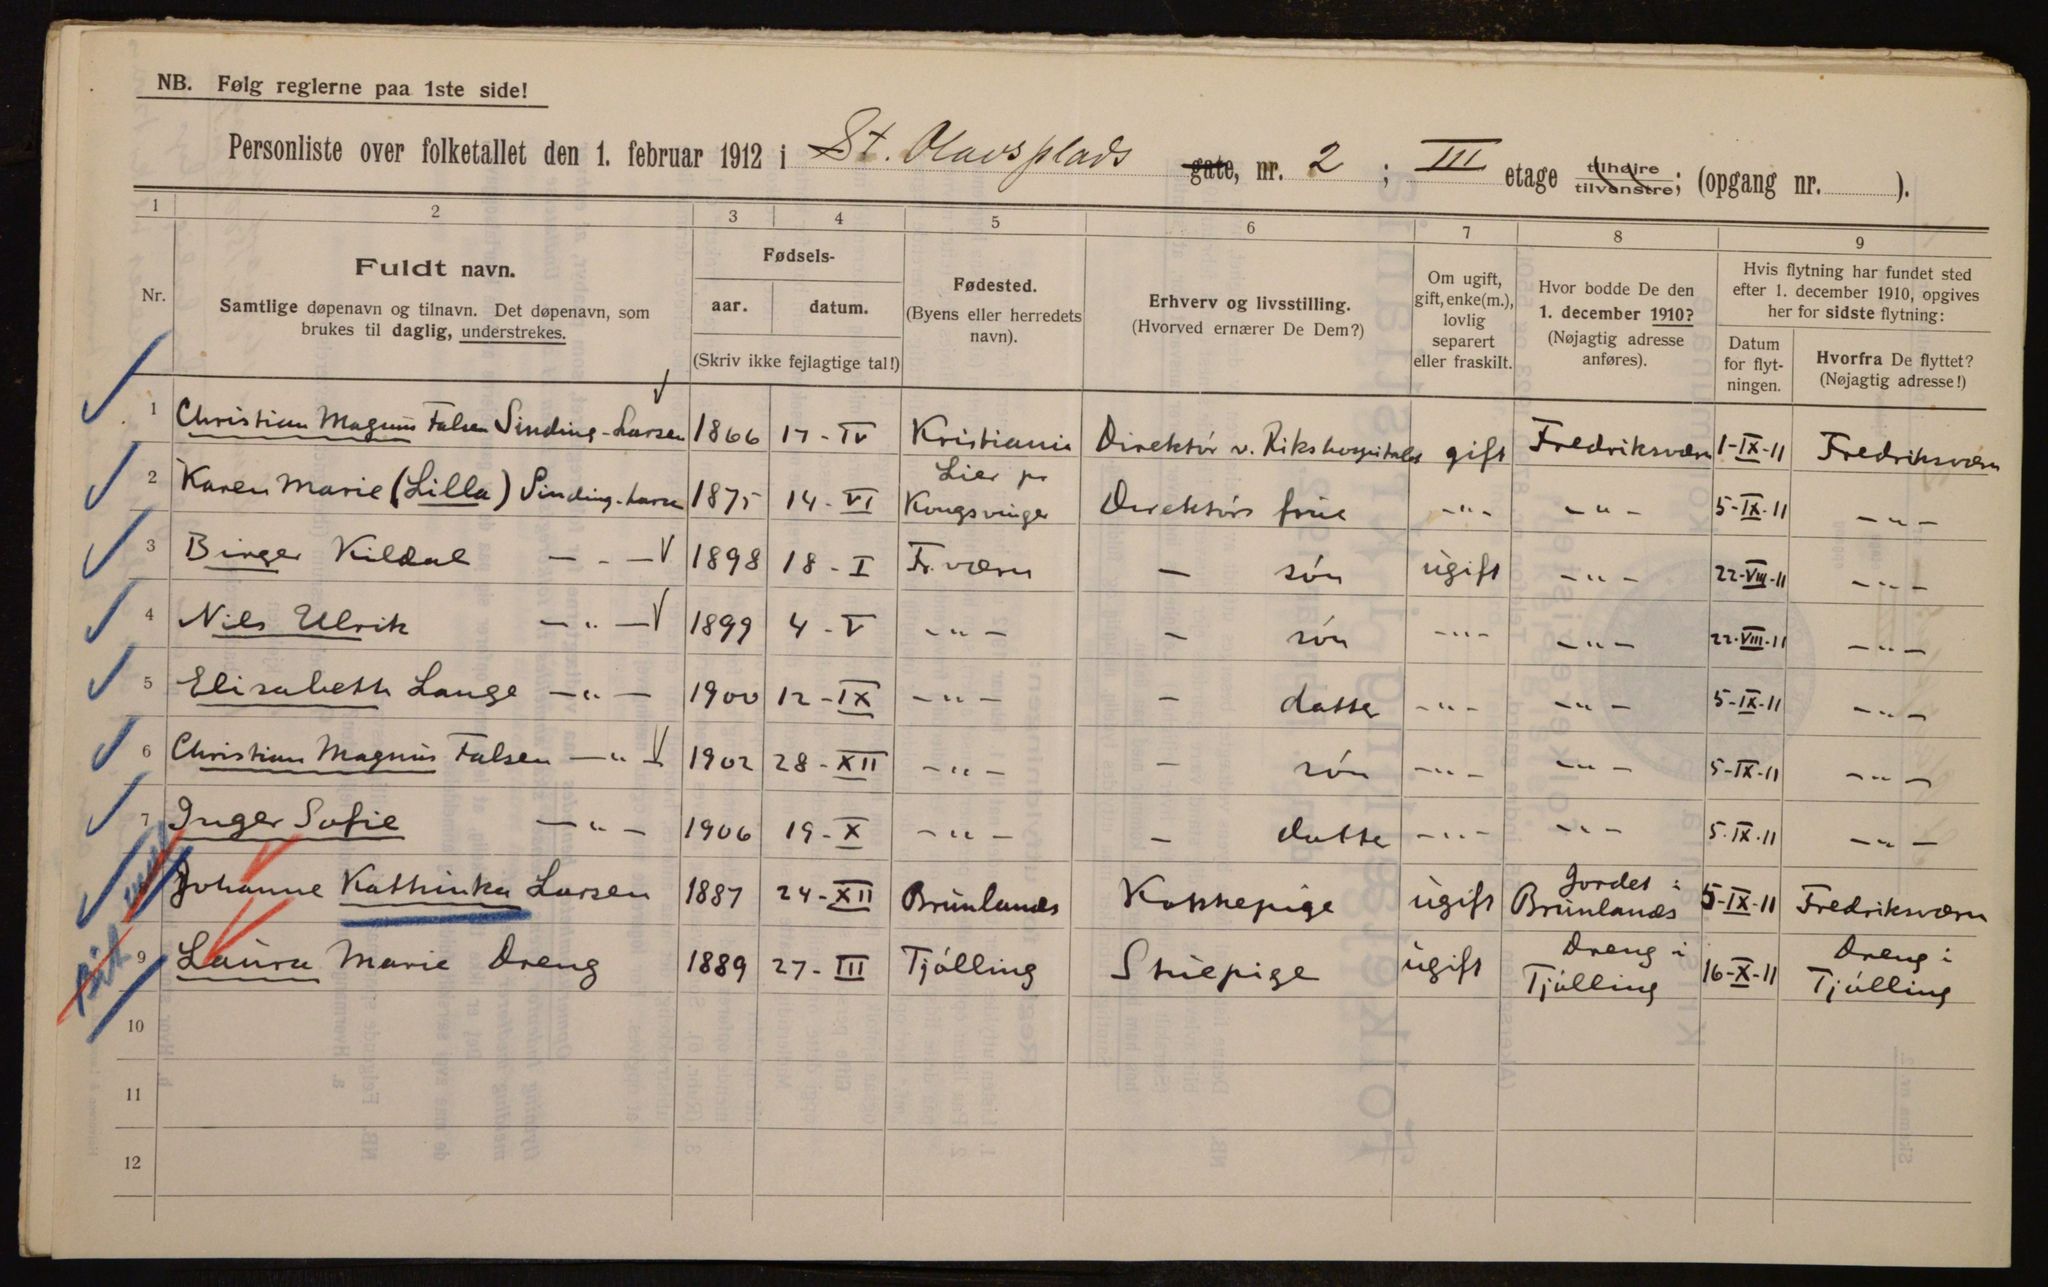 NB. Følg reglerne paa 1ste side!
Personliste over folketallet den 1. februar 1912 i St. Olavsplads gate, nr. 2 ; III etage tilhøire tilvenstre; (opgang nr. ).
1 2 3 4 5 6 7 8 9
Nr.
Fuldt navn.
Samtlige døpenavn og tilnavn. Det døpenavn, som
brukes til daglig, understrekes.
Fødsels-
aar. datum.
(Skriv ikke feilagtige tal!)
Fødested.
(Byens eller herredets
navn).
Erhverv og livsstilling.
(Hvorved ernærer De Dem?)
Om ugift,
gift, enke(m.),
lovlig
separert
eller fraskilt.
Hvor bodde De den
1. december 1910?
(Nøjagtig adresse
anføres).
Hvis flytning har fundet sted
efter 1. december 1910, opgives
her for sidste flytning:
Datum
for flyt-
ningen.
Hvorfra De flyttet?
(Nøjagtig adresse!)
1 Christian Magnus Falsen Sinding-Larsen 1866 17-IV Kristiania Direktör v. Rikshospitalet gift Fredriksværn 1-IX-11 Fredriksværn
2 Karen Marie (Lilla) Sinding-Larsen 1875 14-VI Lier pr Kongsvinger Direktörs frue -"- -"- 5-IX-11 -"-
3 Birger Kildal -"- 1898 18-I Fr.værn - sön ugift -"- 22-VIII-11 -"-
4 Nils Ulrik -"- 1899 4-V -"- - sön -"- -"- 22-VIII-11 -"-
5 Elisabeth Lange -"- 1900 12-IX -"- - datter -"- -"- 5-IX-11 -"-
6 Christian Magnus Falsen -"- 1902 28-XII -"- - sön -"- -"- 5-IX-11 -"-
7 Inger Sofie -"- 1906 19-X -"- - datter -"- -"- 5-IX-11 -"-
Johanne Kathinka Larsen 1887 24-XII Brunlanæs Kokkepige ugift Jordet i Brunlanæs 5-IX-11 Fredriksværn
9 Laura Marie Dreng 1889 27-III Tjölling Stuepige ugift Dreng i Tjölling 16-X-11 Dreng i Tjölling
10
11
12